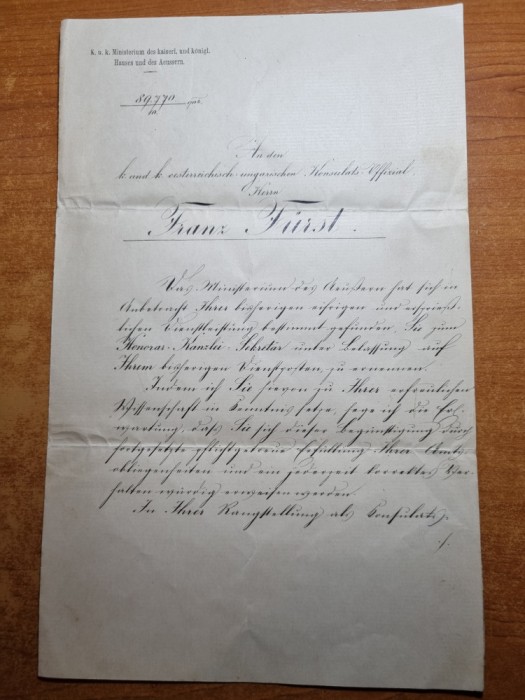 K. u. k. Ministerium des kaiserl. und königl.
Hauses und des Aeussern.
89.770
10
An den
k. und k. oesterreichisch-ungarischen Konsulats-Offizial
Herrn
Franz Fürst.
Das Ministerium des Aeußern hat sich in
Anbetracht Ihrer bisherigen eifrigen und ersprieß-
lichen Dienstleistung bestimmt gefunden, Sie zum
Honorar-Kanzlei-Sekretär unter Belassung auf
Ihrem bisherigen Dienstposten zu ernennen.
Indem ich Sie hievon zu Ihrer erfreulichen
Wissenschaft in Kenntnis setze, hege ich die Er-
wartung, daß Sie sich dieser Begünstigung durch
fortgesetzte pflichtgetreue Erfüllung Ihrer Amts-
obliegenheiten und ein jederzeit korrektes Ver-
halten würdig erweisen werden.
In Ihrer Rangstellung als Konsulats-
./.